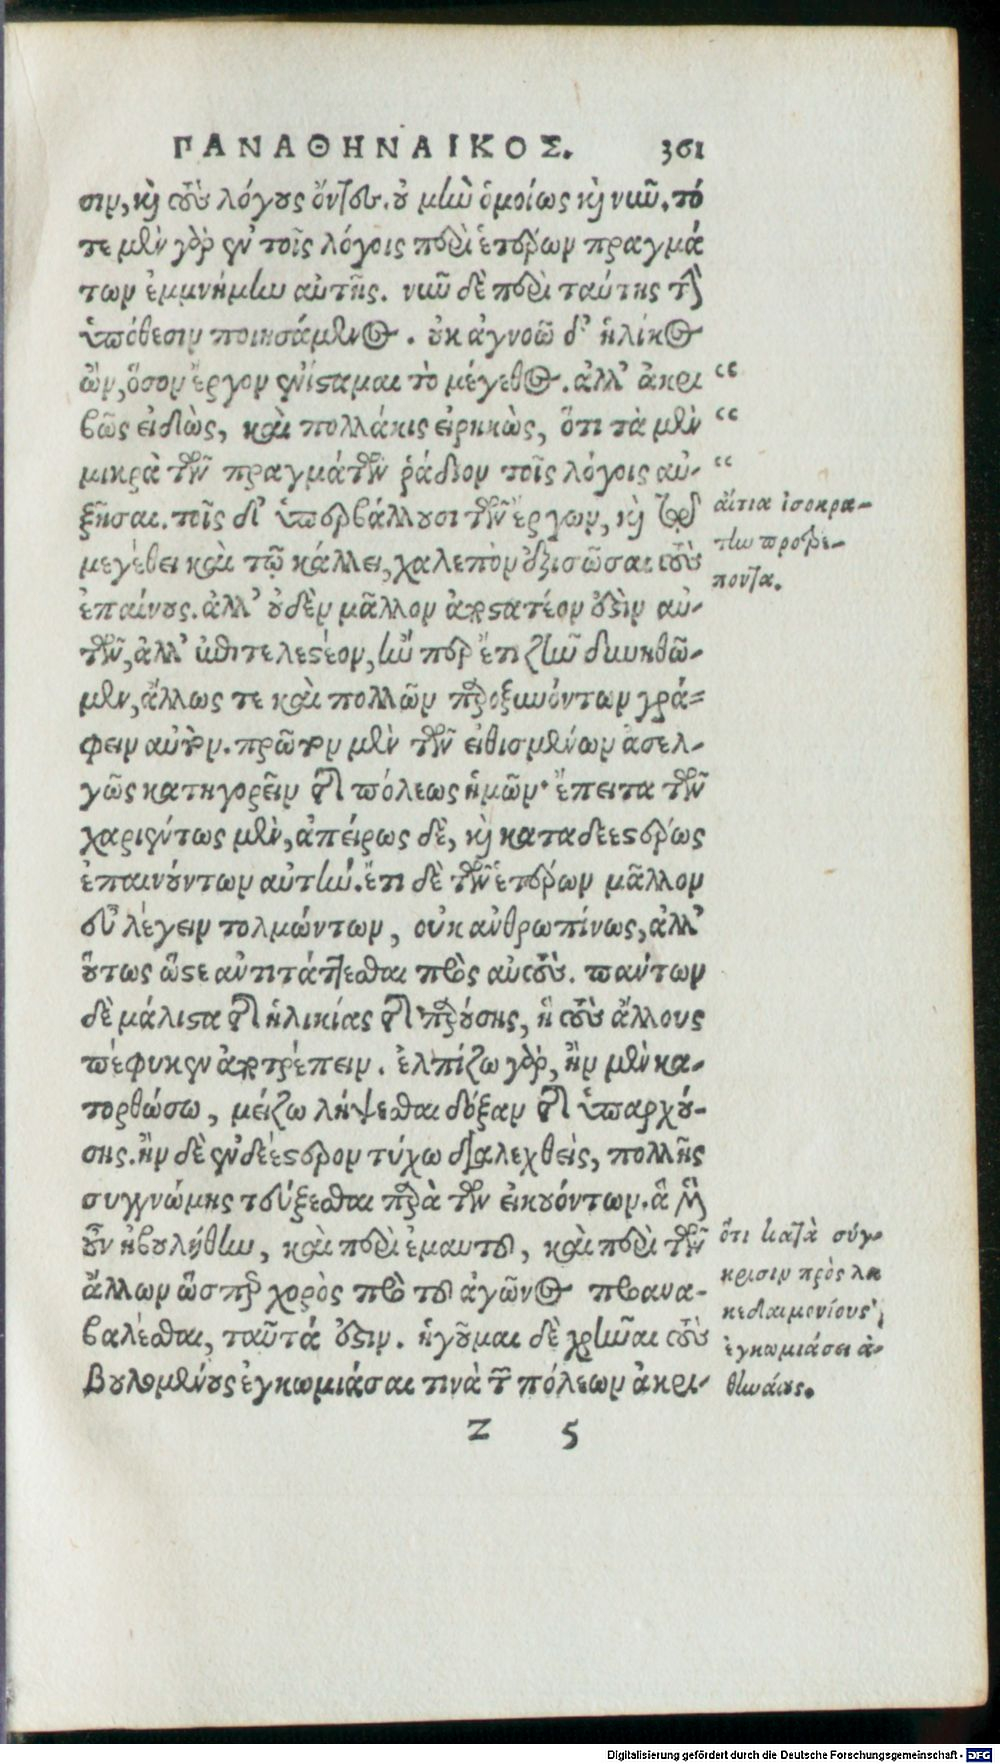 ΠΑΝΑΘΗΝΑΙΚΟΣ. 361
σιν, καὶ τοὺς λόγους ὄντας. οὐ μὴν ὁμοίως καὶ νῦν. τό
τε μὲν γὰρ ἐν τοῖς λόγοις περὶ ἑτέρων πραγμά
των ἐμνήμην αὐτῆς. νῦν δὲ περὶ ταύτης τὴν
ὑπόθεσιν ποιησάμενος. οὐκ ἀγνοῶ δ' ἡλίκος
ὢν, ὅσον ἔργον ἐνίσταμαι τὸ μέγεθος. ἀλλ' ἀκρι “
βῶς εἰδὼς, καὶ πολλάκις εἰρηκὼς, ὅτι τὰ μὲν “
μικρὰ τῶν πραγμάτων ῥάδιον τοῖς λόγοις αὐ- “
ξῆσαι. τοῖς δ' ὑπερβάλλουσι τῶν ἔργων, καὶ τῷ
μεγέθει καὶ τῷ κάλλει, χαλεπὸν ἐξισῶσαι τοὺς
ἐπαίνους. ἀλλ' οὐδὲν μᾶλλον ἀποστατέον ἐστὶν αὐ-
τῶν, ἀλλ' ἐπιτελεστέον, ἤν περ ἔτι ζῆν δυνηθῶ-
μεν, ἄλλως τε καὶ πολλῶν παροξυνόντων γρά-
φειν αὐτόν. πρῶτον μὲν τῶν εἰθισμένων ἀσελ-
γῶς κατηγορεῖν τῆς πόλεως ἡμῶν· ἔπειτα τῶν
χαριέντως μὲν, ἀπείρως δὲ, καὶ καταδεεστέρως
ἐπαινούντων αὐτήν. ἔτι δὲ τῶν ἑτέρων μᾶλλον
εὖ λέγειν τολμώντων, οὐκ ἀνθρωπίνως, ἀλλ'
οὕτως ὥστε ἀντιτάττεσθαι πρὸς αὐτούς. πάντων
δὲ μάλιστα τῆς ἡλικίας τῆς παρούσης, ἣ τοὺς ἄλλους
πέφυκεν ἀποτρέπειν. ἐλπίζω γὰρ, ἢν μὲν κα-
τορθώσω, μείζω λήψεσθαι δόξαν τῆς ὑπαρχού-
σης. ἢν δὲ ἐνδεέστερον τύχω διαλεχθεὶς, πολλῆς
συγγνώμης τεύξεσθαι παρὰ τῶν εἰκουόντων. ἃ μὲν
οὖν ἠβουλήθην, καὶ περὶ ἐμαυτοῦ, καὶ περὶ τῶν
ἄλλων ὥσπερ χορὸς πρὸ τοῦ ἀγῶνος προανα-
βαλέσθαι, ταῦτά ἐστιν. ἡγοῦμαι δὲ χρῆναι τοὺς
βουλομένους ἐγκωμιάσαι τινὰ τῶν πόλεων ἀκρι-
Z 5
αἴτια ἰσοκρα-
την προτρέ-
ποντα.
ὅτι κατὰ σύγ-
κρισιν πρὸς λα
κεδαιμονίους
ἐγκωμιάσει ἀ-
θηναίους.